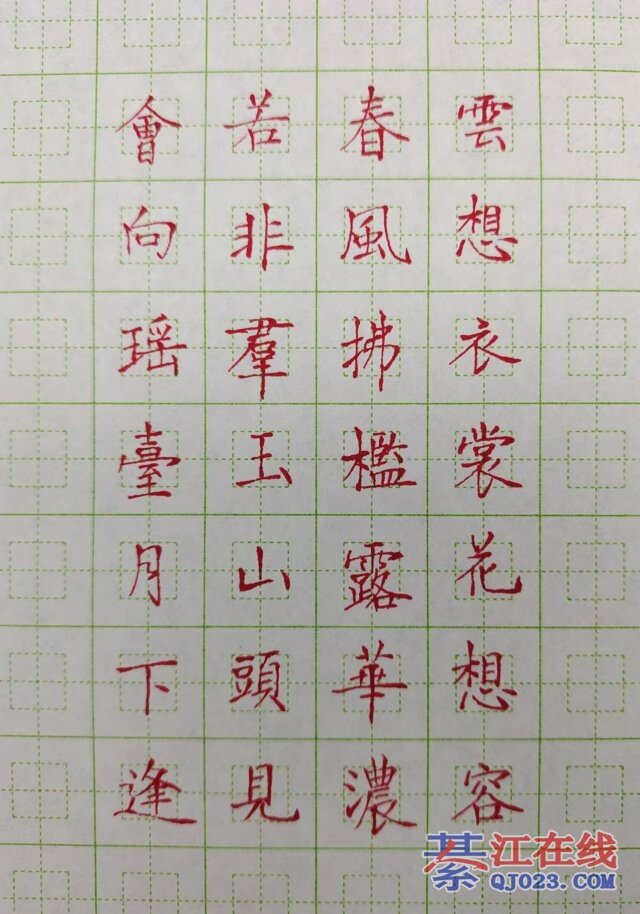 雲想衣裳花想容
春風拂檻露華濃
若非羣玉山頭見
會向瑶臺月下逢
綦江在线
QJ023.COM